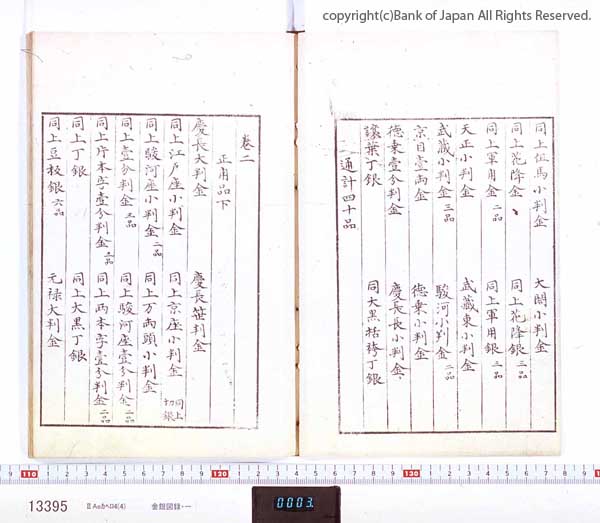 copyright(c)Bank of Japan All Rights Reserved.
同上但馬小判金 大閤小判金
同上花降金 同上花降銀 三品
同上軍用金 二品 同上軍用銀 三品
天正小判金 武藏東小判金
武藏小判金 三品 駿河小判金 二品
京目壹兩金 德乗小判金
德乗壹分判金 慶長長小判金
讓葉丁銀 同大黒括袴丁銀
通計四十品
卷二
正用品下
慶長大判金 慶長笹判金
同上江戸座小判金 同上京座小判金 同上切銀
同上駿河座小判金 二品 同上万兩頭小判金
同上壹分判金 三品 同上駿河座壹分判金 二品
同上片本字壹分判金 二品 同上兩本字壹分判金 二品
同上丁銀 同上大黒丁銀
同上豆板銀 六品 元禄大判金
110 120 130
13395 ⅡAaあべロ4(4) 金銀図録・一
0003